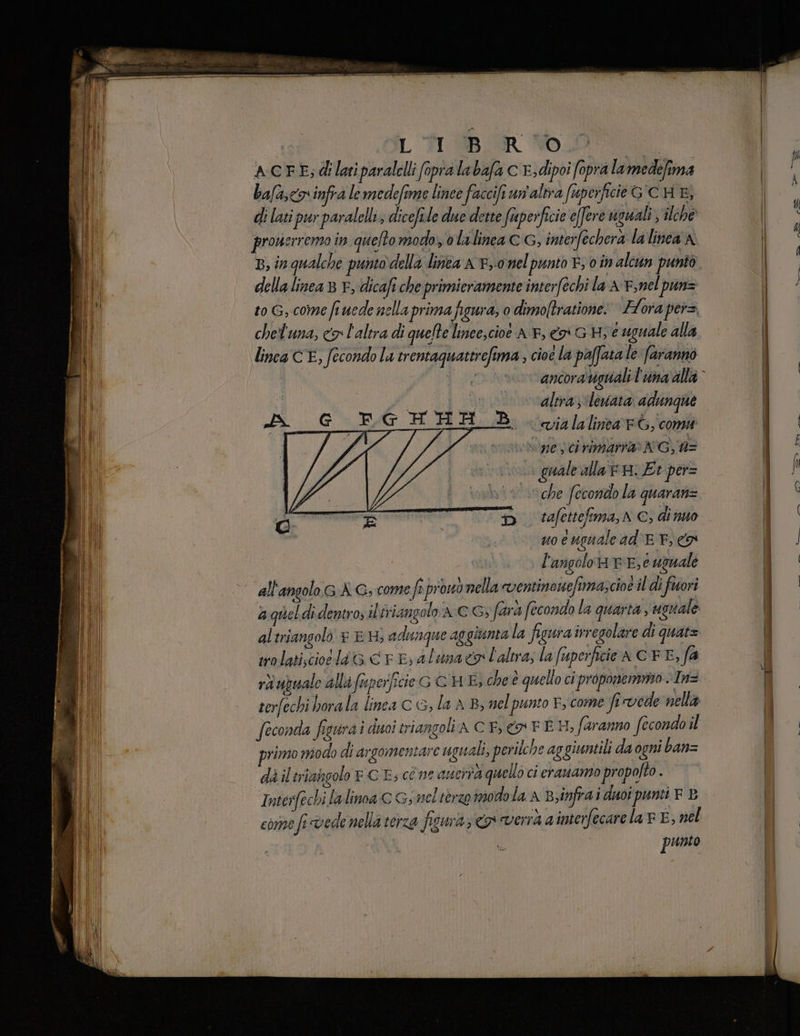 LIBRO
ACFE, di lati paralelli ſopra la baſa CE, dipoi ſopra la medeſima
baſa, & infra le medeſime linee facciſi un'altra ſuperficie GCHE,
di lati pur paralelli, diceſi le due dette ſuperficie eſſere uguali, ilche
prouerremo in queſto modo, o la linea CG, interſecherà la linea A
B, in qualche punto della linea AF, o nel punto F, o in alcun punto
della linea BF, dicaſi che primieramente interſechi la AF, nel pun=
to G, come ſi uede nella prima figura, o dimoſtratione. Hora per=
che l'una, & l'altra di queſte linee, cioè AF, & GH, è uguale alla
linea CE, ſecondo la trentaquattreſima, cioè la paſſata le ſaranno
ancora uguali l'una alla
altra, leuata adunque
A G F G H H H B via la linea FG, comu
ne, ci rimarrà AG, u=
guale alla FH. Et per=
che ſecondo la quaran=
C E D taſetteſima, A C, di nuo
uo è uguale ad EF, &
l'angolo HFE, è uguale
all'angolo GAG, come ſi prouò nella ventinoueſima, cioè il di fuori
a quel di dentro, il triangolo ACG, ſarà ſecondo la quarta, uguale
al triangolo FEH, adunque aggiunta la figura irregolare di quat=
tro lati, cioè la GCFE, a l'una & l'altra, la ſuperficie ACFE, ſa
rà uguale alla ſuperficie GCHE, che è quello ci proponemmo. In=
terſechi hora la linea CG, la AB, nel punto F, come ſi vede nella
ſeconda figura i duoi triangoli ACF, & FEH, ſaranno ſecondo il
primo modo di argomentare uguali, perilche aggiuntili da ogni ban=
da il triangolo FCE, cene auerrà quello ci erauamo propoſto.
Interſechi la linea CG, nel terzo modo la AB, infra i duoi punti FB
come ſi vede nella terza figura, & verrà a interſecare la FE, nel
punto